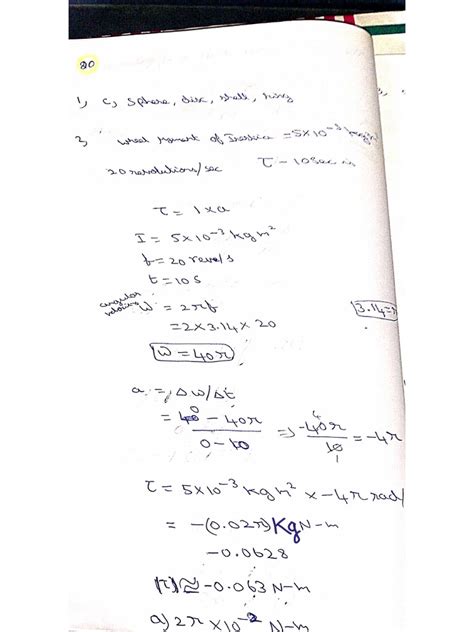 20
1, c, Sphere, disc, shell, ring
2, wheel Moment of Inertia = 5×10⁻³ kgm²
20 revolutions/sec τ - 10 Sec
τ = I × a
I = 5×10⁻³ kgm²
f = 20 reve/s
t = 10 S
angular velocity W = 2πf
= 2×3.14×20 3.14=π
W = 40π
a = Δω/Δt
= 0 - 40π / 0 - 10 => -40π / 10 = -4π
τ = 5×10⁻³ kgm² × -4π rad/
= -(0.02π) Kg N-m
-0.0628
|τ| ≅ -0.063 N-m
a) 2π × 10⁻² N-m